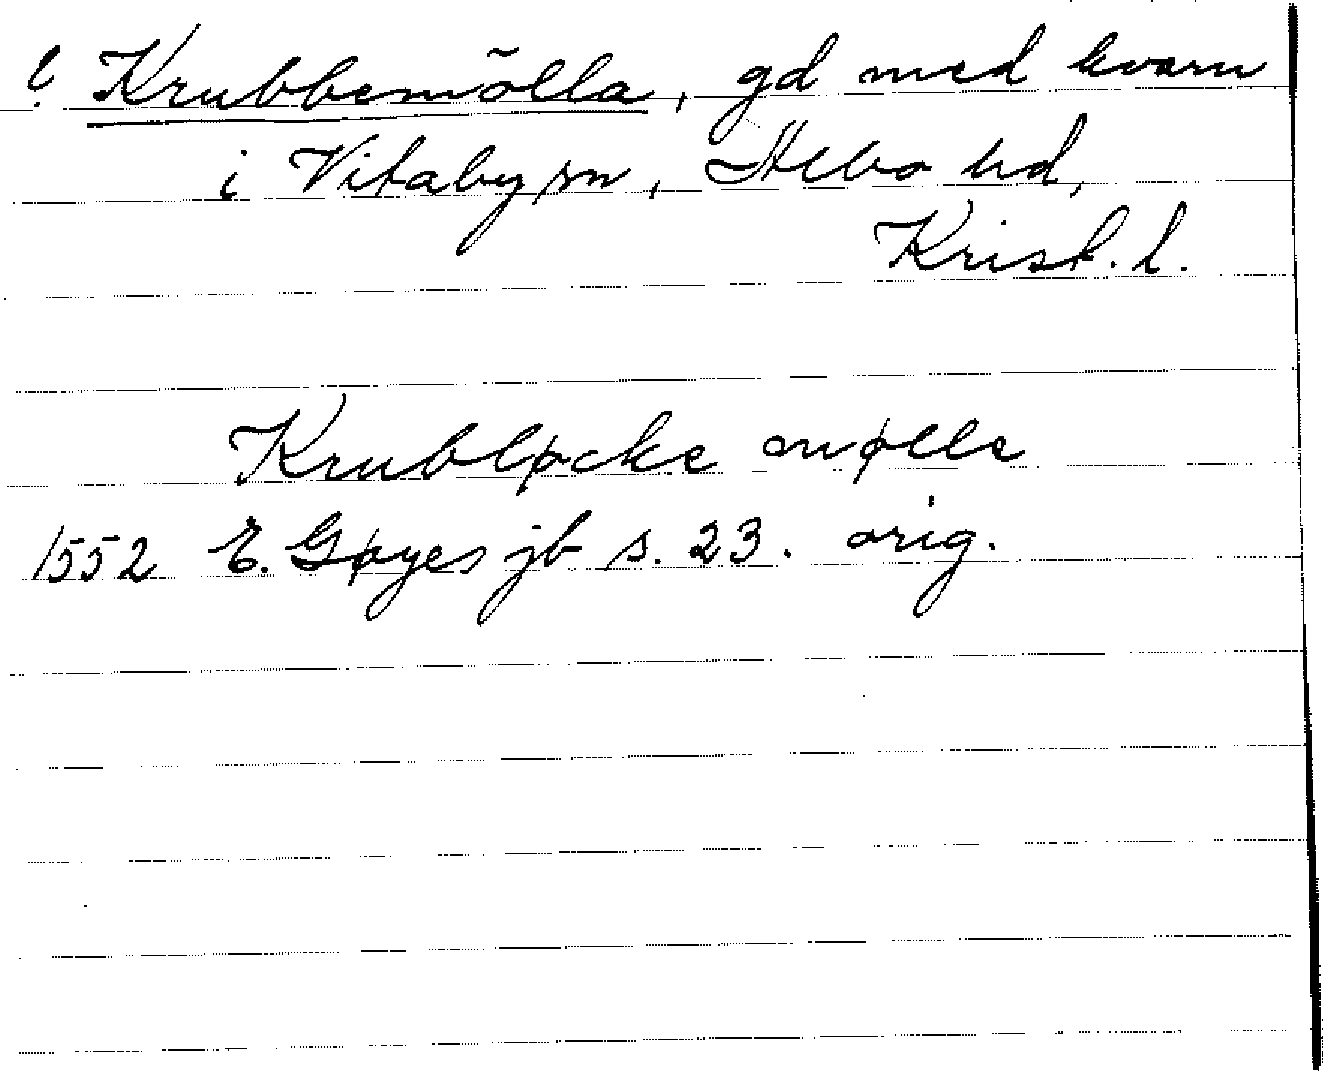 ? Krubbemölla, gd med kvarn
i Vitaby sn, Albo hd,
Krist. l.
Krubløcke mølle
1552 E. Gøyes jb s. 23. orig.